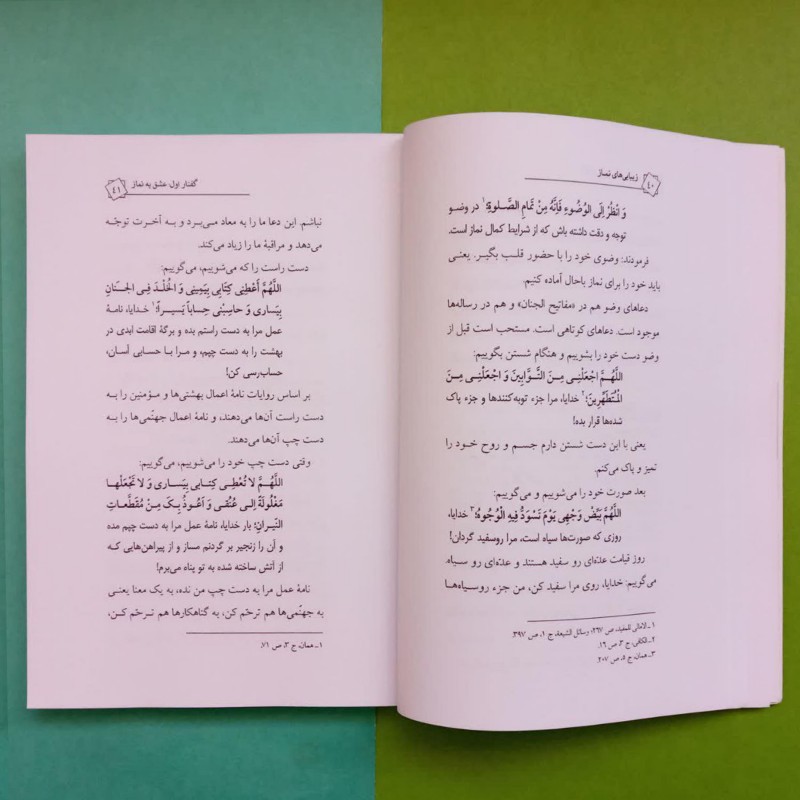 زیبایی‌های نماز
۴۰
وَ انْظُرْ إِلَی الْوُضُوءِ فَإِنَّهُ مِنْ تَمَامِ الصَّلَوةِ؛۱ در وضو
توجه و دقت داشته باش که از شرایط کمال نماز است.
فرمودند: وضوی خود را با حضور قلب بگیر. یعنی
باید خود را برای نماز باحال آماده کنیم.
دعاهای وضو هم در «مفاتیح الجنان» و هم در رساله‌ها
موجود است. دعاهای کوتاهی است. مستحب است قبل از
وضو دست خود را بشوییم و هنگام شستن بگوییم:
اللَّهُمَّ اجْعَلْنِی مِنَ التَّوَّابِینَ وَ اجْعَلْنِی مِنَ
الْمُتَطَهِّرِینَ؛۲ خدایا، مرا جزء توبه‌کنندها و جزء پاک
شده‌ها قرار بده!
یعنی با این دست شستن دارم جسم و روح خود را
تمیز و پاک می‌کنم.
بعد صورت خود را می‌شوییم و می‌گوییم:
اللَّهُمَّ بَیِّضْ وَجْهِی یَوْمَ تَسْوَدُّ فِیهِ الْوُجُوهُ؛۳ خدایا،
روزی که صورت‌ها سیاه است، مرا روسفید گردان!
روز قیامت عدّه‌ای رو سفید هستند و عدّه‌ای رو سیاه.
می‌گوییم: خدایا، روی مرا سفید کن، من جزء روسیاه‌ها
۱ـ الامالی للمفید، ص ۲۶۷؛ وسائل الشیعة، ج ۱، ص ۳۹۷.
۲ـ الکافی، ج ۳، ص ۱۶.
۳ـ همان، ج ۵، ص ۲۰۷
گفتار اول: عشق به نماز
۴۱
نباشم. این دعا ما را به معاد می‌برد و به آخرت توجّه
می‌دهد و مراقبهٔ ما را زیاد می‌کند.
دست راست را که می‌شوییم، می‌گوییم:
اللَّهُمَّ أَعْطِنِی کِتَابِی بِیَمِینِی وَ الْخُلْدَ فِی الْجِنَانِ
بِیَسَارِی وَ حَاسِبْنِی حِسَاباً یَسِیراً؛۱ خدایا، نامهٔ
عمل مرا به دست راستم بده و برگهٔ اقامت ابدی در
بهشت را به دست چپم، و مرا با حسابی آسان،
حساب‌رسی کن!
بر اساس روایات نامهٔ اعمال بهشتی‌ها و مؤمنین را به
دست راست آن‌ها می‌دهند، و نامهٔ اعمال جهنّمی‌ها را به
دست چپ آن‌ها می‌دهند.
وقتی دست چپ خود را می‌شوییم، می‌گوییم:
اللَّهُمَّ لَا تُعْطِنِی کِتَابِی بِیَسَارِی وَ لَا تَجْعَلْهَا
مَغْلُولَةً إِلَی عُنُقِی وَ أَعُوذُ بِکَ مِنْ مُقَطَّعَاتِ
النِّیرَانِ؛ بار خدایا، نامهٔ عمل مرا به دست چپم مده
و آن را زنجیر بر گردنم مساز و از پیراهن‌هایی که
از آتش ساخته شده به تو پناه می‌برم!
نامهٔ عمل مرا به دست چپ من نده، به یک معنا یعنی
به جهنّمی‌ها هم ترحّم کن، به گناهکارها هم ترحّم کن،
۱ـ همان، ج ۳، ص ۷۱.